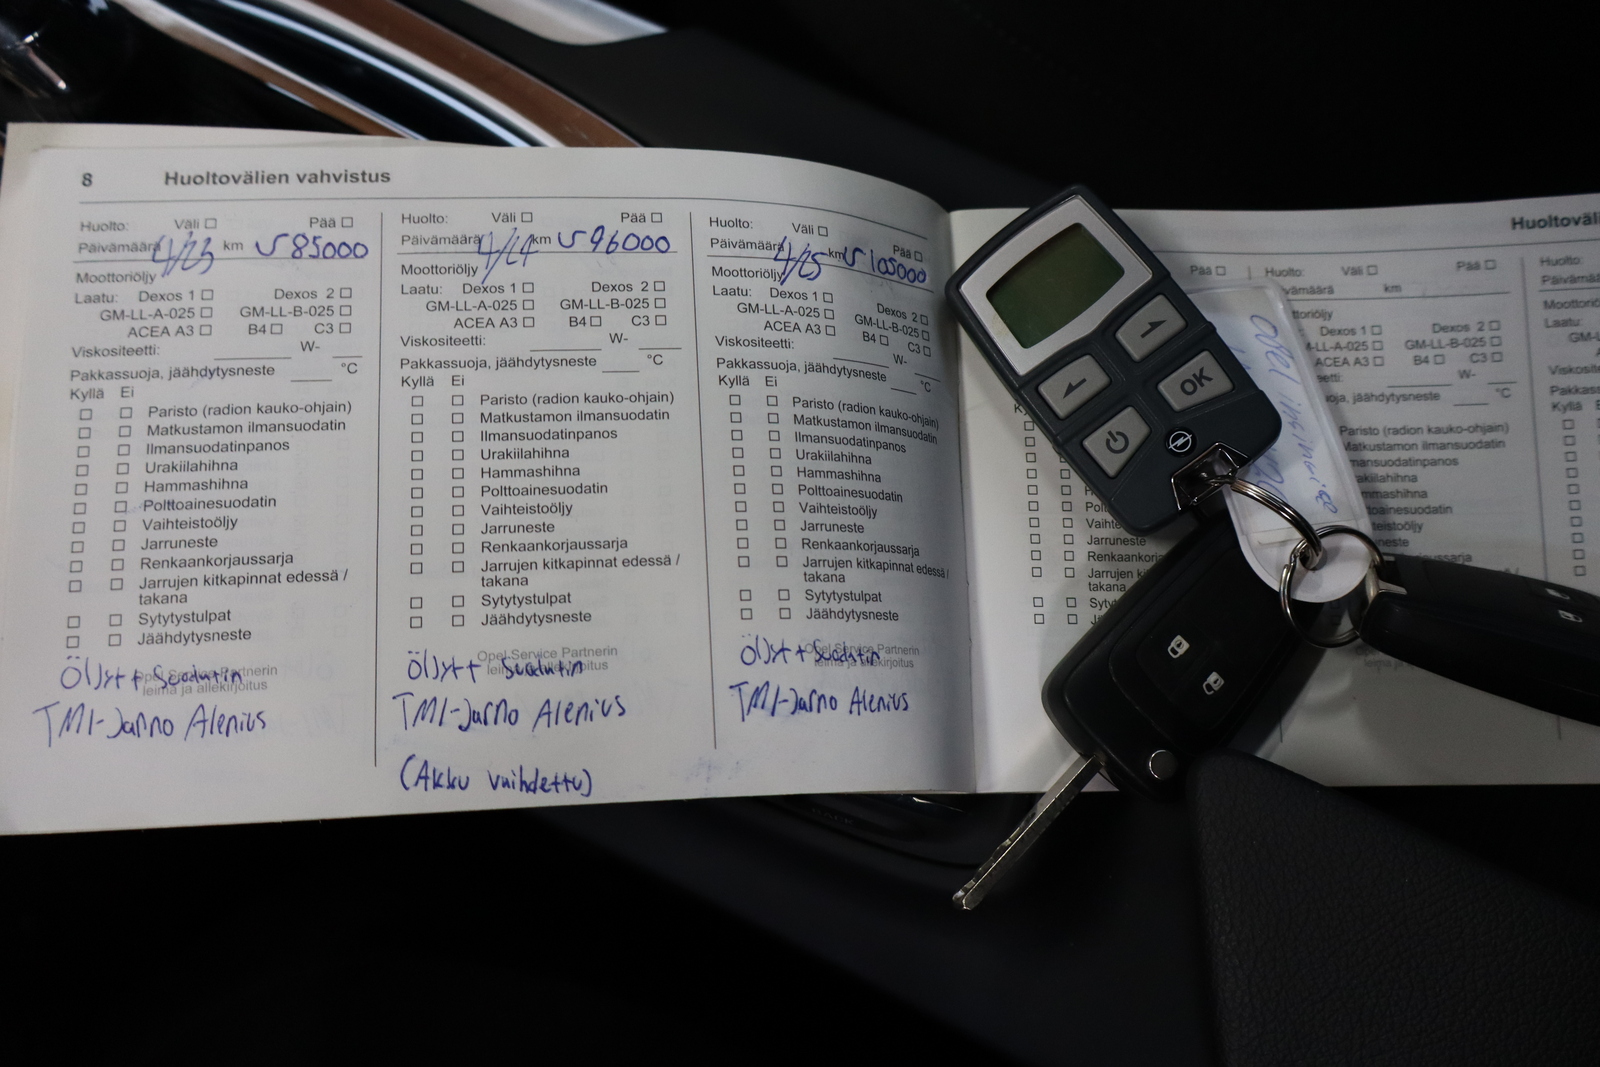 8 Huoltovälien vahvistus
Huolto: Väli Pää
Päivämäärä 4/23 km 85000
Moottoriöljy
Laatu: Dexos 1 Dexos 2
GM-LL-A-025 GM-LL-B-025
ACEA A3 B4 C3
Viskositeetti: W-
Pakkassuoja, jäähdytysneste °C
Kyllä Ei
Paristo (radion kauko-ohjain)
Matkustamon ilmansuodatin
Ilmansuodatinpanos
Urakiilahihna
Hammashihna
Polttoainesuodatin
Vaihteistoöljy
Jarruneste
Renkaankorjaussarja
Jarrujen kitkapinnat edessä /
takana
Sytytystulpat
Jäähdytysneste
Opel Service Partnerin
leima ja allekirjoitus
Öljyt + Suodatin
TMI-Jarno Alenius
Huolto: Väli Pää
Päivämäärä 4/24 km 96000
Moottoriöljy
Laatu: Dexos 1 Dexos 2
GM-LL-A-025 GM-LL-B-025
ACEA A3 B4 C3
Viskositeetti: W-
Pakkassuoja, jäähdytysneste °C
Kyllä Ei
Paristo (radion kauko-ohjain)
Matkustamon ilmansuodatin
Ilmansuodatinpanos
Urakiilahihna
Hammashihna
Polttoainesuodatin
Vaihteistoöljy
Jarruneste
Renkaankorjaussarja
Jarrujen kitkapinnat edessä /
takana
Sytytystulpat
Jäähdytysneste
Opel Service Partnerin
leima ja allekirjoitus
Öljyt + Suodatin
TMI-Jarno Alenius
(Akku vaihdettu)
Huolto: Väli Pää
Päivämäärä 4/25 km 105000
Moottoriöljy
Laatu: Dexos 1 Dexos 2
GM-LL-A-025 GM-LL-B-025
ACEA A3 B4 C3
Viskositeetti: W-
Pakkassuoja, jäähdytysneste °C
Kyllä Ei
Paristo (radion kauko-ohjain)
Matkustamon ilmansuodatin
Ilmansuodatinpanos
Urakiilahihna
Hammashihna
Polttoainesuodatin
Vaihteistoöljy
Jarruneste
Renkaankorjaussarja
Jarrujen kitkapinnat edessä /
takana
Sytytystulpat
Jäähdytysneste
Opel Service Partnerin
leima ja allekirjoitus
Öljyt + Suodatin
TMI-Jarno Alenius
OK
Opel insignia
Pää
Huolto: Väli Pää
km
Dexos 1 Dexos 2
ACEA A3 B4 C3
W-
°C
Paristo (radion kauko-ohjain)
Matkustamon ilmansuodatin
Huolto:
Laatu:
Kyllä